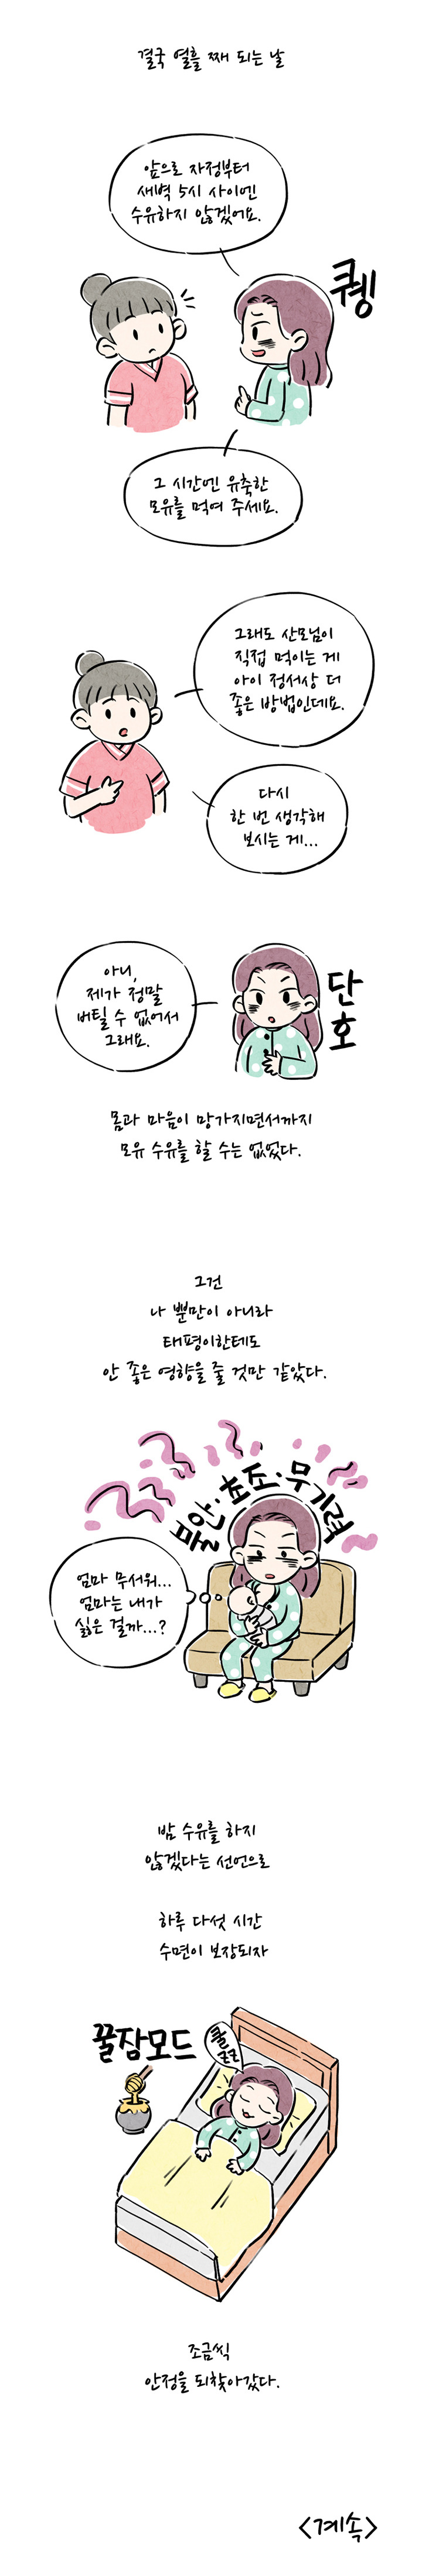 결국 열흘 째 되는 날
앞으로 자정부터
새벽 5시 사이엔
수유하지 않겠어요.
퀭
그 시간엔 유축한
모유를 먹여 주세요.
그래도 산모님이
직접 먹이는 게
아이 정서상 더
좋은 방법인데요.
다시
한 번 생각해
보시는 게...
아니,
제가 정말
버틸 수 없어서
그래요.
단
호
몸과 마음이 망가지면서까지
모유 수유를 할 수는 없었다.
그건
나 뿐만이 아니라
태평이한테도
안 좋은 영향을 줄 것만 같았다.
불안·초조·무기력
엄마 무서워...
엄마는 내가
싫은 걸까...?
밤 수유를 하지
않겠다는 선언으로
하루 다섯 시간
수면이 보장되자
꿀잠모드
쿨
쿨쿨
조금씩
안정을 되찾아갔다.
<계속>